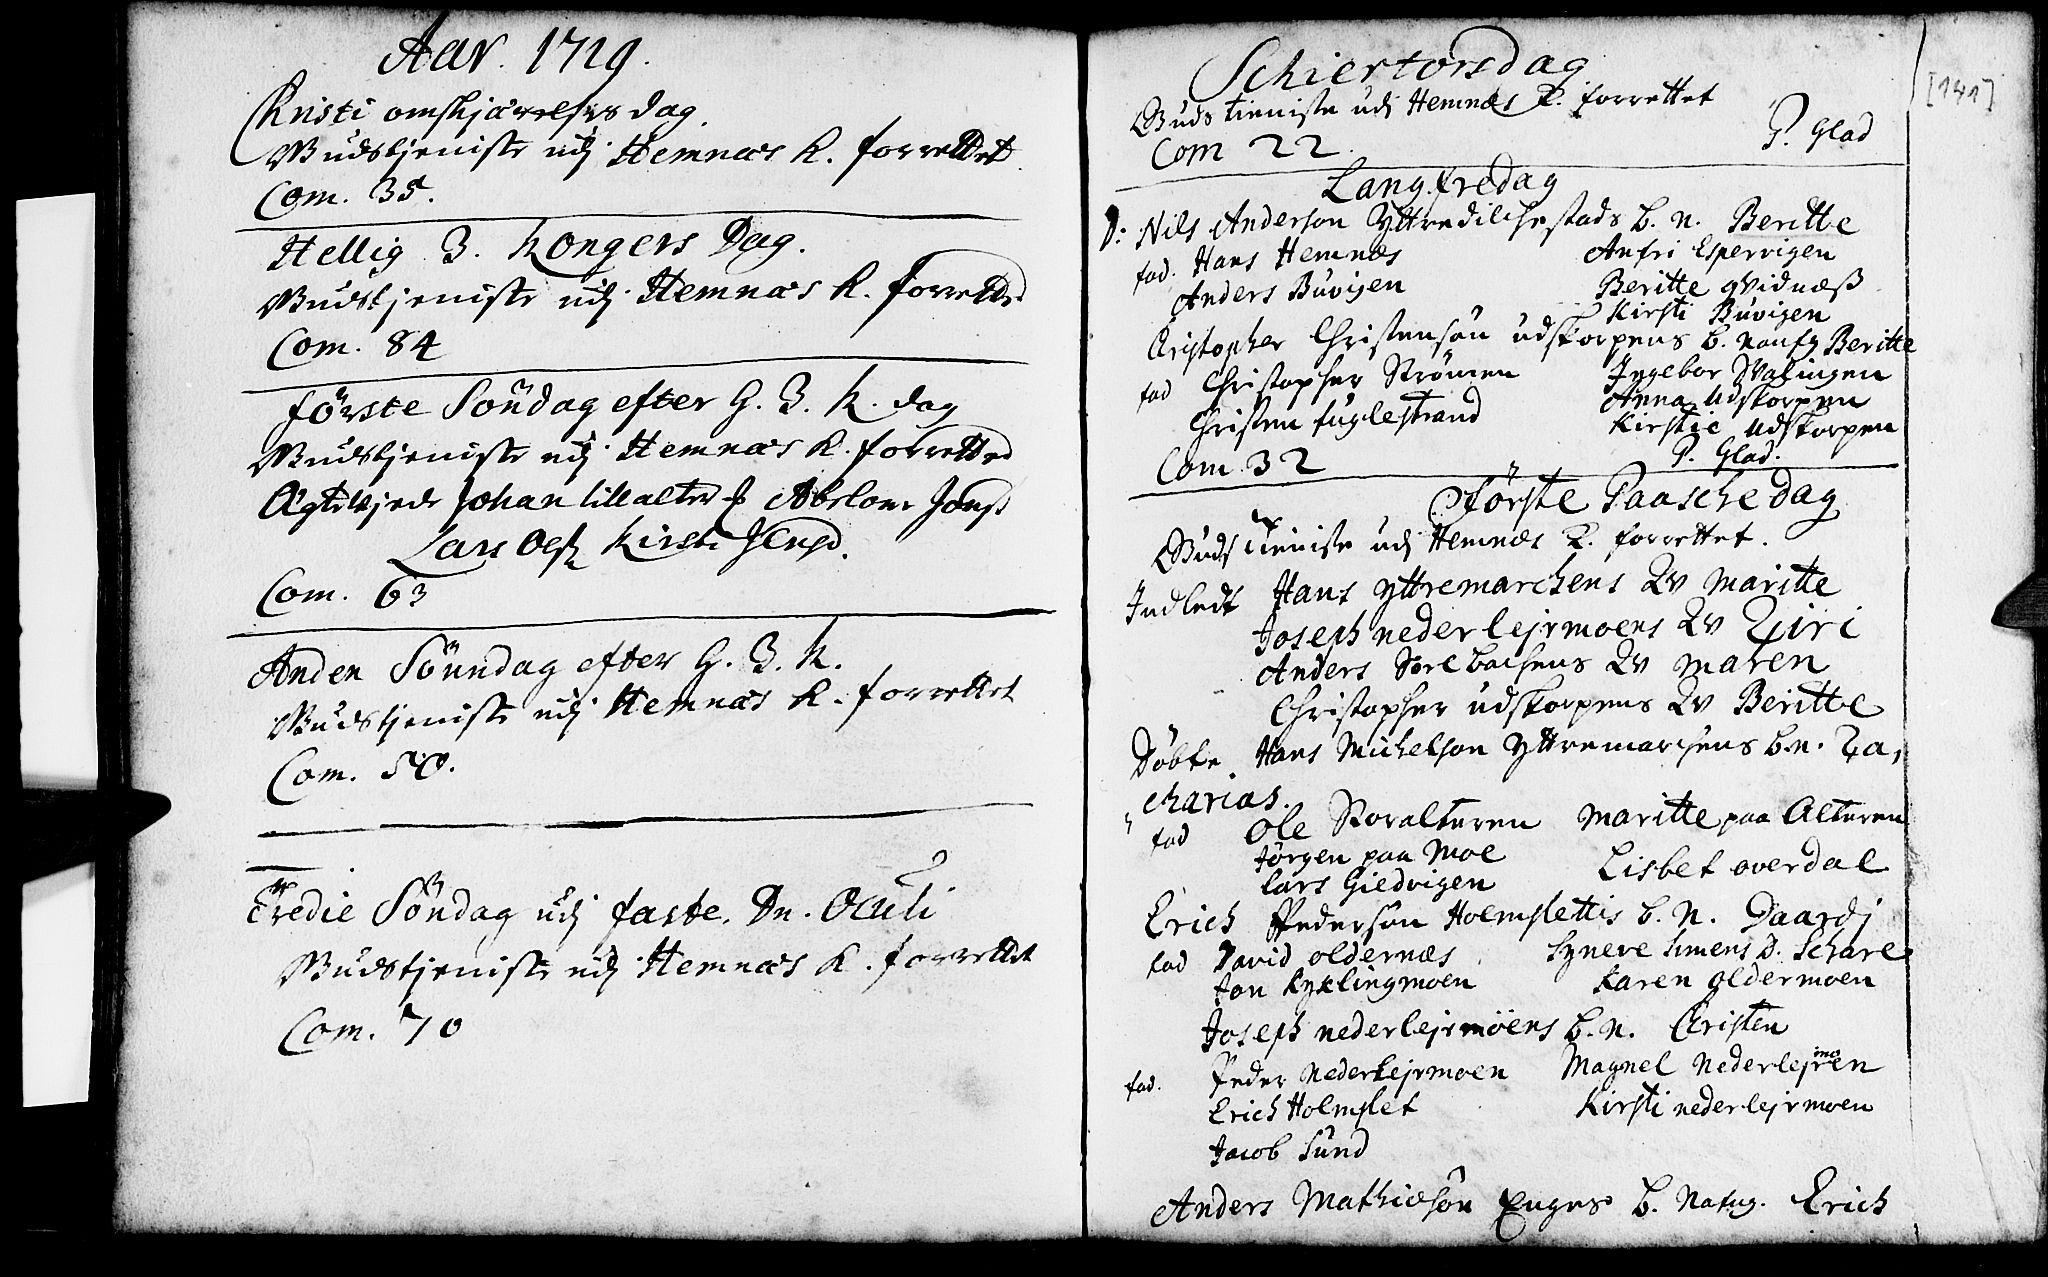 Aar. 1719.
Christi omskjærelses dag.
Gudstjeniste udj Hemnæs K. forrettet
Com. 35.
Hellig 3. Kongers Dag.
Gudstjeniste udj Hemnæs K. forrettet
Com. 84
første Söndag efter H. 3. K. dag
Gudstjeniste udj Hemnæs K. forretted
Johan lillalter Abelone
Lars Kirsti
Com. 63
Anden Sönndag efter H. 3. K.
Gudstjeniste udj Hemnæs K. forrettet
Com. 50.
Tredie Söndag udj faste. Dn. Oculi
Gudstjeniste udj Hemnæs K. forrettet
Com. 70
[141]
Schiertorsdag
Guds tieniste udj Hemnæs K. forrettet
P. Glad
Com 22.
Langfredag
D: Nils Anderson b. n. Beritte
fad. Hans Hemnæs Anfri Espervigen
Anders Buvigen Beritte qvidnæß
Kirsti Buvigen
Cristopher Christensøn udskorpens b. naufn Beritte
fad Christopher Strömen Ingebor Valingen
Christen fuglestrand Anna Udskorpen
Kirstie Udskorpen
Com. 32 P. Glad.
Første Paasche dag
Guds tieniste udj Hemnæs K. forrettet.
Indledt Hans yttremarchens Qv Maritte
Joseph nederlejrmoens Qv Ziri
Anders Qv maren
Christopher udskorpens Qv Beritte
Döbte. Hans Michelson Yttremarchens b.n. Za,
charias.
fad Ole Storalteren Maritte paa Alteren
Jörgen paa Moe Lisbet overdal
Lars Giedvigen
Erich Pedersøn Holmslettis b. N. Daardj
fad David oldernæs Syneve Simens D. Schare
Jon Kyklingmoen Karen oldermoen
Joseph nederlejrmöens b. n. Cristen
fad. Peder Nederlejrmoen Magnel Nederlejrmoen
Erich Holmslet Kirsti nederlejrmoen
Jacob Sund
Anders Mathiesøn Enges b. Nafn. Erich